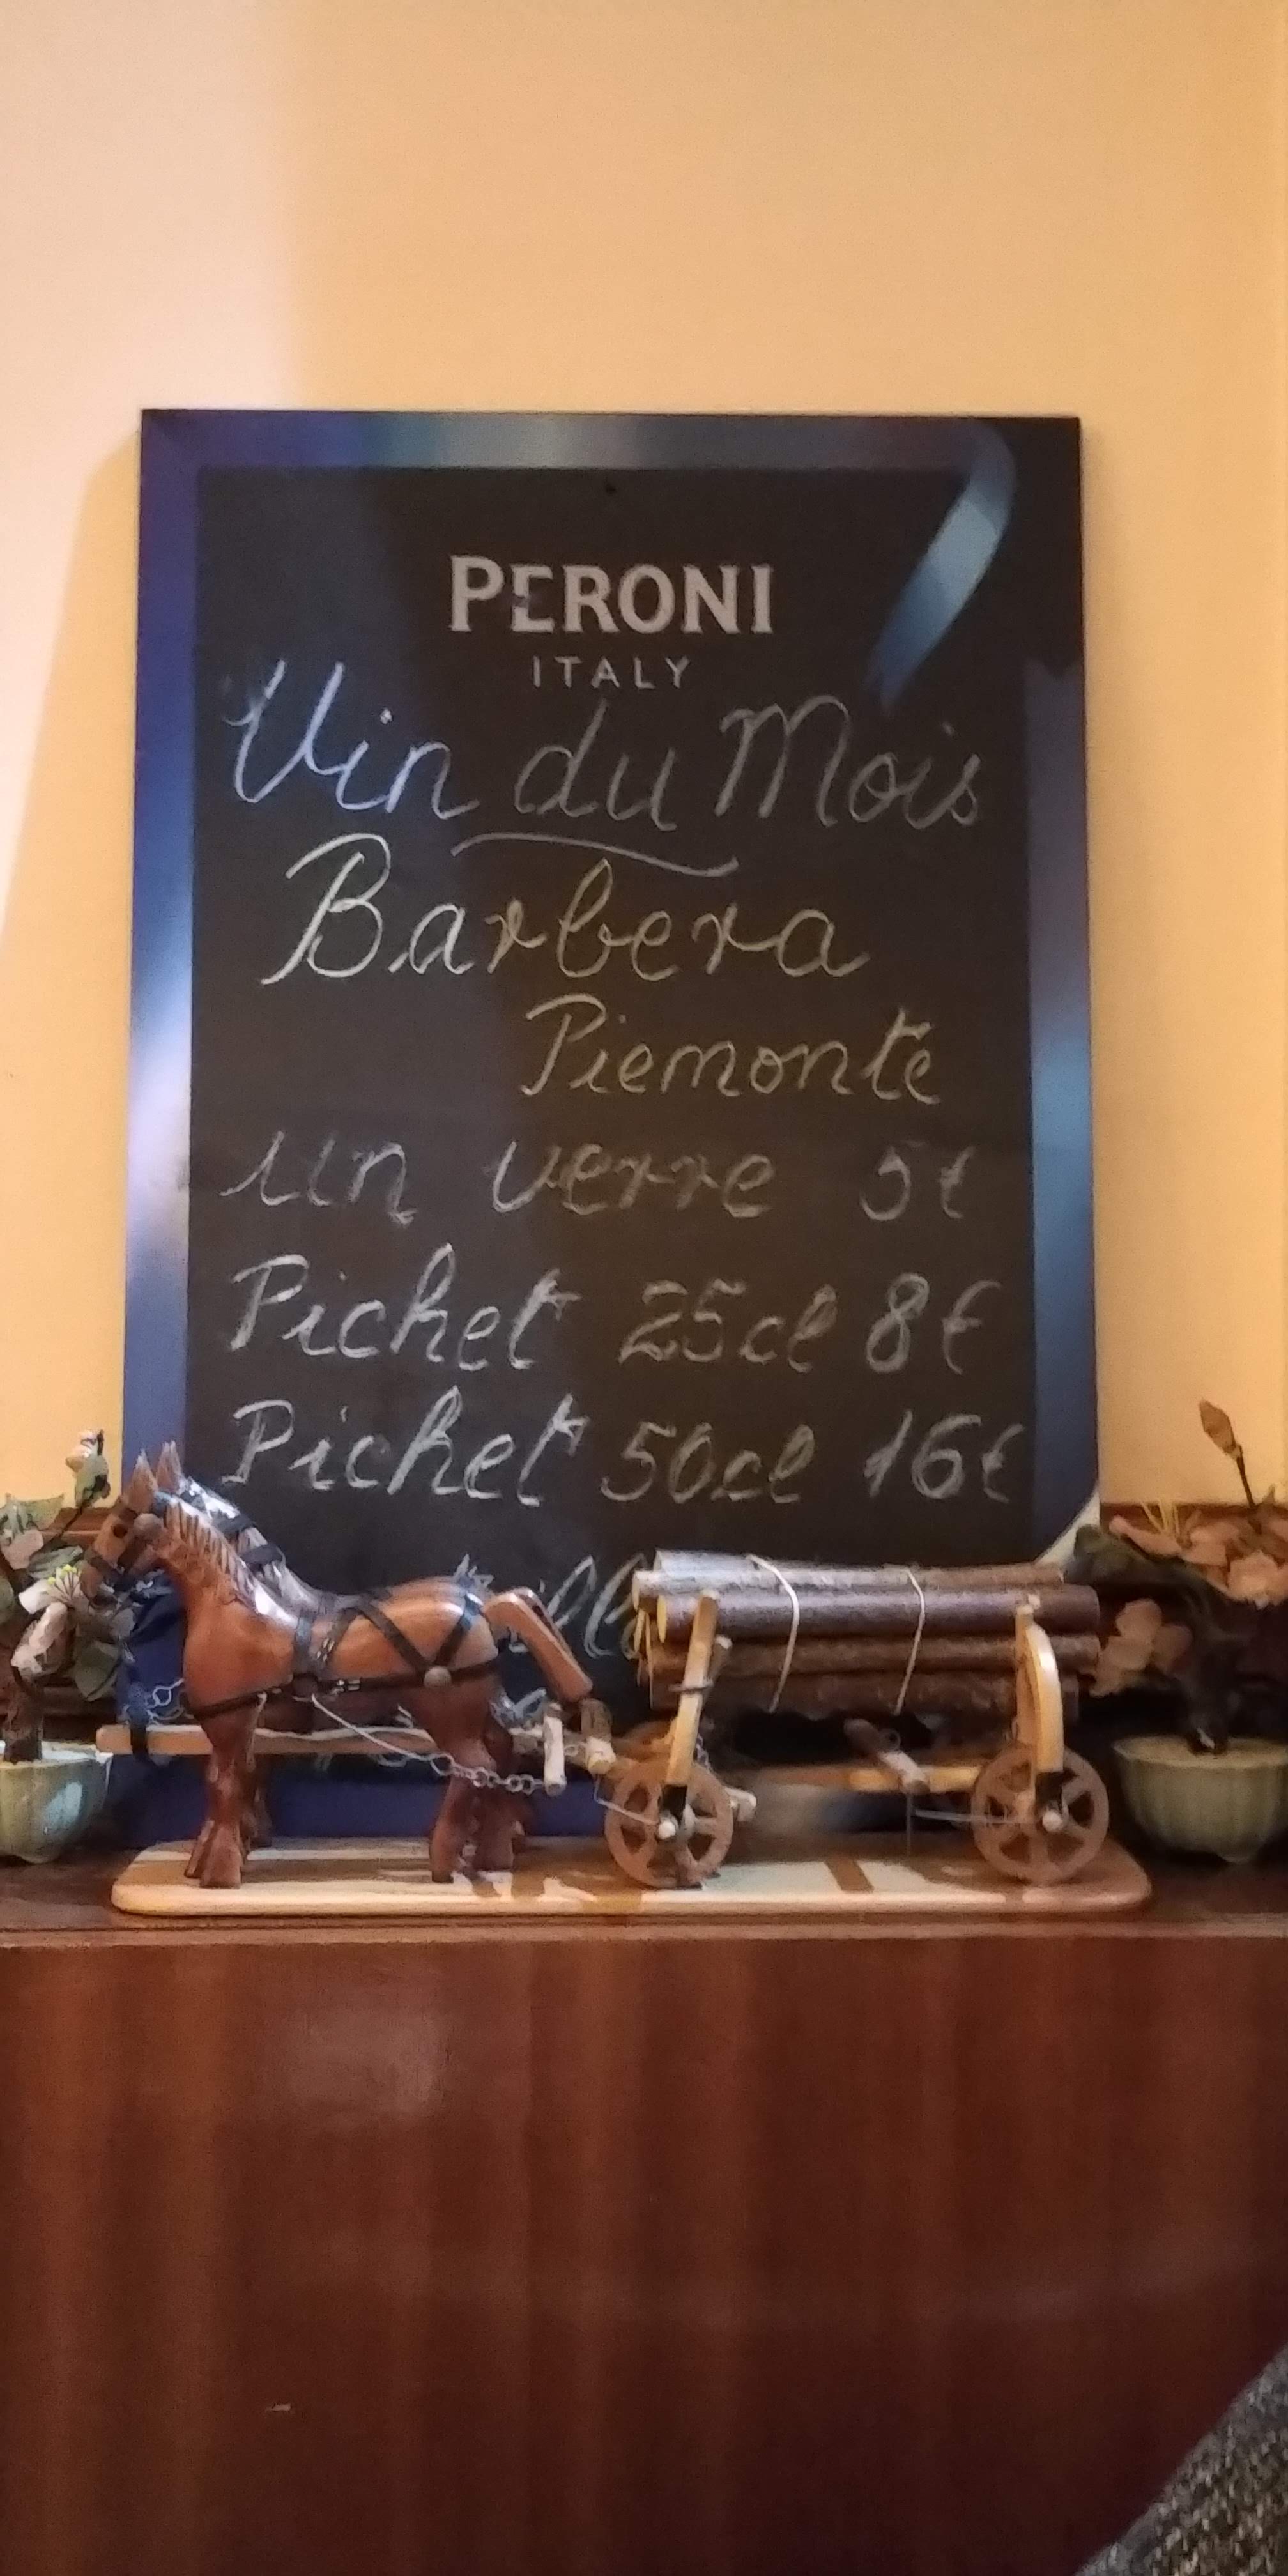 PERONI
ITALY
Vin du Mois
Barbera
Piemonte
un verre 5€
Pichet 25cl 8€
Pichet 50cl 16€